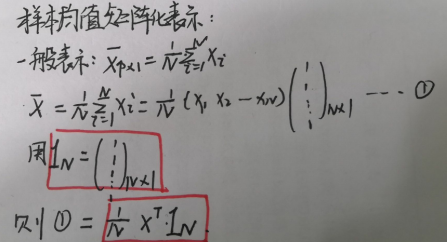 样本均值矩阵化表示:
一般表示: X̄p×1 = 1/N Σ_{i=1}^{N} Xi
X̄ = 1/N Σ_{i=1}^{N} Xi = 1/N (X1 X2 -- XN) (1 1 ⋮ 1)N×1 ---- ①
用 1N = (1 1 ⋮ 1)N×1
则 ① = 1/N X^T·1N.